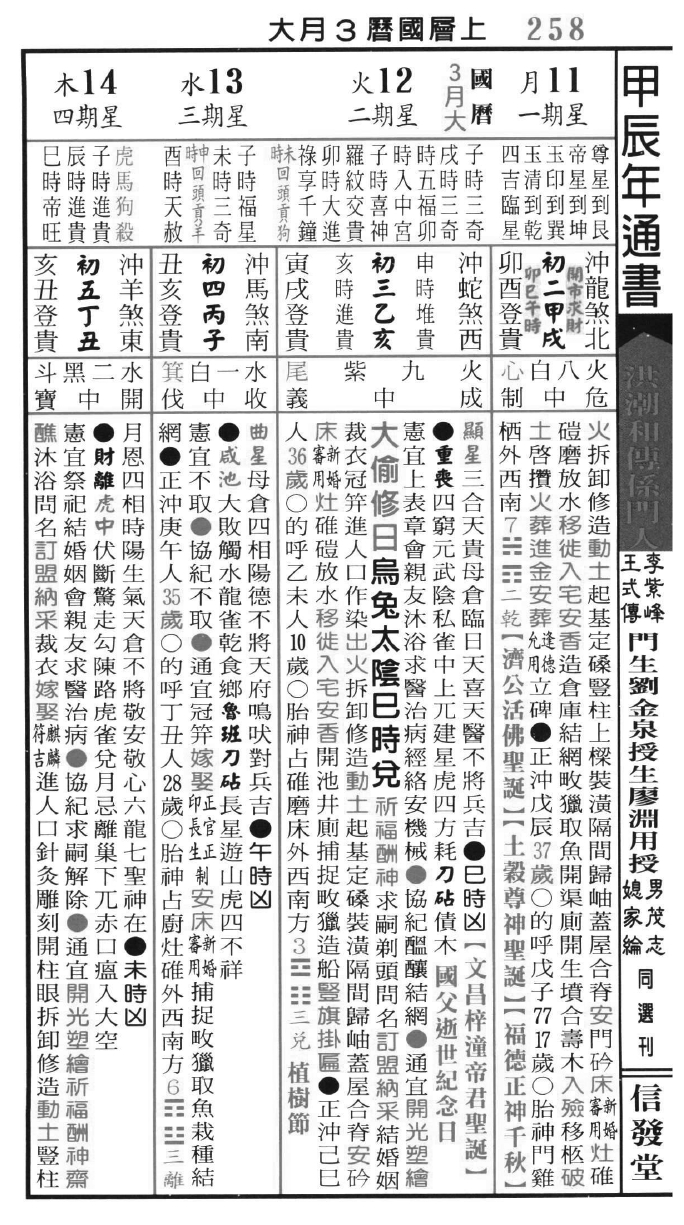 大月3曆國層上 258
甲辰年通書
洪潮和傅係門人
李紫峰
王式傳
門生劉金泉授生廖淵用授
男茂志
媳家綸
同選刊
信發堂
國曆
3月大
月11
一期星
尊星到艮
帝星到坤
玉印到巽
玉清到乾
四吉臨星
沖龍煞北
開市求財
初二甲戌
卯巳午時
卯酉登貴
火危
八中
白
心制
火拆卸修造動土起基定磉豎柱上樑裝潢隔間歸岫蓋屋合脊安門矽床新婚審用灶碓
磑磨放水移徙入宅安香造倉庫結網畋獵取魚開渠廁開生墳合壽木入殮移柩破
土啓攢火葬進金安葬逢德允用立碑●正沖戊辰37歲○的呼戊子77 17歲○胎神門雞
栖外西南7 ䷵ 二乾【濟公活佛聖誕】【土穀尊神聖誕】【福德正神千秋】
火12
二期星
子時三奇
戌時三奇
時五福卯
時入中宮
子時喜神
羅紋交貴
卯時大進
祿享千鐘
未時回頭貢狗
沖蛇煞西
申時堆貴
初三乙亥
亥時進貴
寅戌登貴
火成
九
中
紫
尾義
顯星三合天貴母倉臨日天喜天醫不將兵吉●巳時凶【文昌梓潼帝君聖誕】
●重喪四窮元武陰私雀中上兀建星虎四方耗刀砧債木 國父逝世紀念日
憲宜上表章會親友沐浴求醫治病經絡安機械●協紀醞釀結網●通宜開光塑繪
大偷修日烏兔太陰巳時兌祈福酬神求嗣剃頭問名訂盟納采結婚姻
裁衣冠笄進人口作染出火拆卸修造動土起基定磉裝潢隔間歸岫蓋屋合脊安矽
床新婚審用灶碓磑放水移徙入宅安香開池井廁捕捉畋獵造船豎旗掛匾●正沖己巳
人36歲○的呼乙未人10歲○胎神占碓磨床外西南方3 三兌 植樹節
水13
三期星
子時福星
未時三奇
申時回頭貢羊
酉時天赦
沖馬煞南
初四丙子
丑亥登貴
水收
一中
白
箕伐
曲星母倉四相陽德不將天府鳴吠對兵吉●午時凶
●咸池大敗觸水龍雀乾食鄉魯班刀砧長星遊山虎四不祥
憲宜不取●協紀不取●通宜冠笄嫁娶正官正印長生制安床新婚審用捕捉畋獵取魚栽種結
網●正沖庚午人35歲○的呼丁丑人28歲○胎神占廚灶碓外西南方6 三離
木14
四期星
虎馬狗殺
子時進貴
辰時進貴
巳時帝旺
沖羊煞東
初五丁丑
亥丑登貴
水開
二中
黑
斗寶
月恩四相時陽生氣天倉不將敬安敬心六龍七聖神在●未時凶
●財離虎中伏斷驚走勾陳路虎雀兌月忌離巢下兀赤口瘟入大空
憲宜祭祀結婚姻會親友求醫治病●協紀求嗣解除●通宜開光塑繪祈福酬神齋
醮沐浴問名訂盟納采裁衣嫁娶麒麟符吉進人口針灸雕刻開柱眼拆卸修造動土豎柱